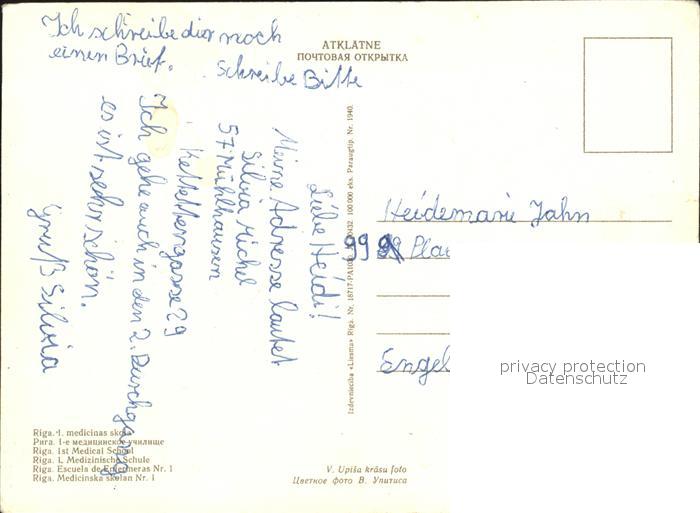 Ich schreibe dir noch
einen Brief.
Schreibe Bitte
ATKLĀTNE
ПОЧТОВАЯ ОТКРЫТКА
Liebe Heidi!
Meine Adresse lautet
Silvia Michel
57 Mühlhausen
29
Ich gehe auch in den 2. Durchgang
es ist sehr schön.
Gruß Silvia
Izdevniecība «Liesma» Rīgā. Nr. 100 000 eks. Paraugtip. Nr. 1940.
Heidemarie Jahn
99
Engel
privacy protection
Datenschutz
Rīga. 1. medicīnas skola
Рига. 1-е медицинское училище
Riga. 1st Medical School
Riga. 1. Medizinische Schule
Riga. Escuela de Enfermeras Nr. 1
Riga. Medicinska skolan Nr. 1
V. Upīša krāsu foto
Цветное фото В. Упитиса